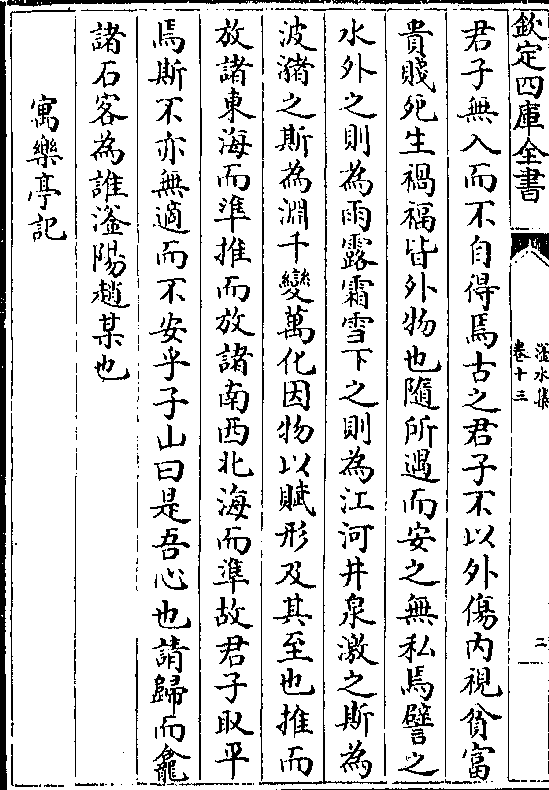 欽定四庫全書
滏水集
卷十三
二
君子無入而不自得焉古之君子不以外傷内視貧富
貴賤死生禍福皆外物也隨所遇而安之無私焉譬之
水外之則為雨露霜雪下之則為江河井泉激之斯為
波瀦之斯為淵千變萬化因物以賦形及其至也推而
放諸東海而準推而放諸南西北海而準故君子取平
焉斯不亦無適而不安乎子山曰是吾心也請歸而龕
諸石客為誰滏陽趙某也
寓樂亭記